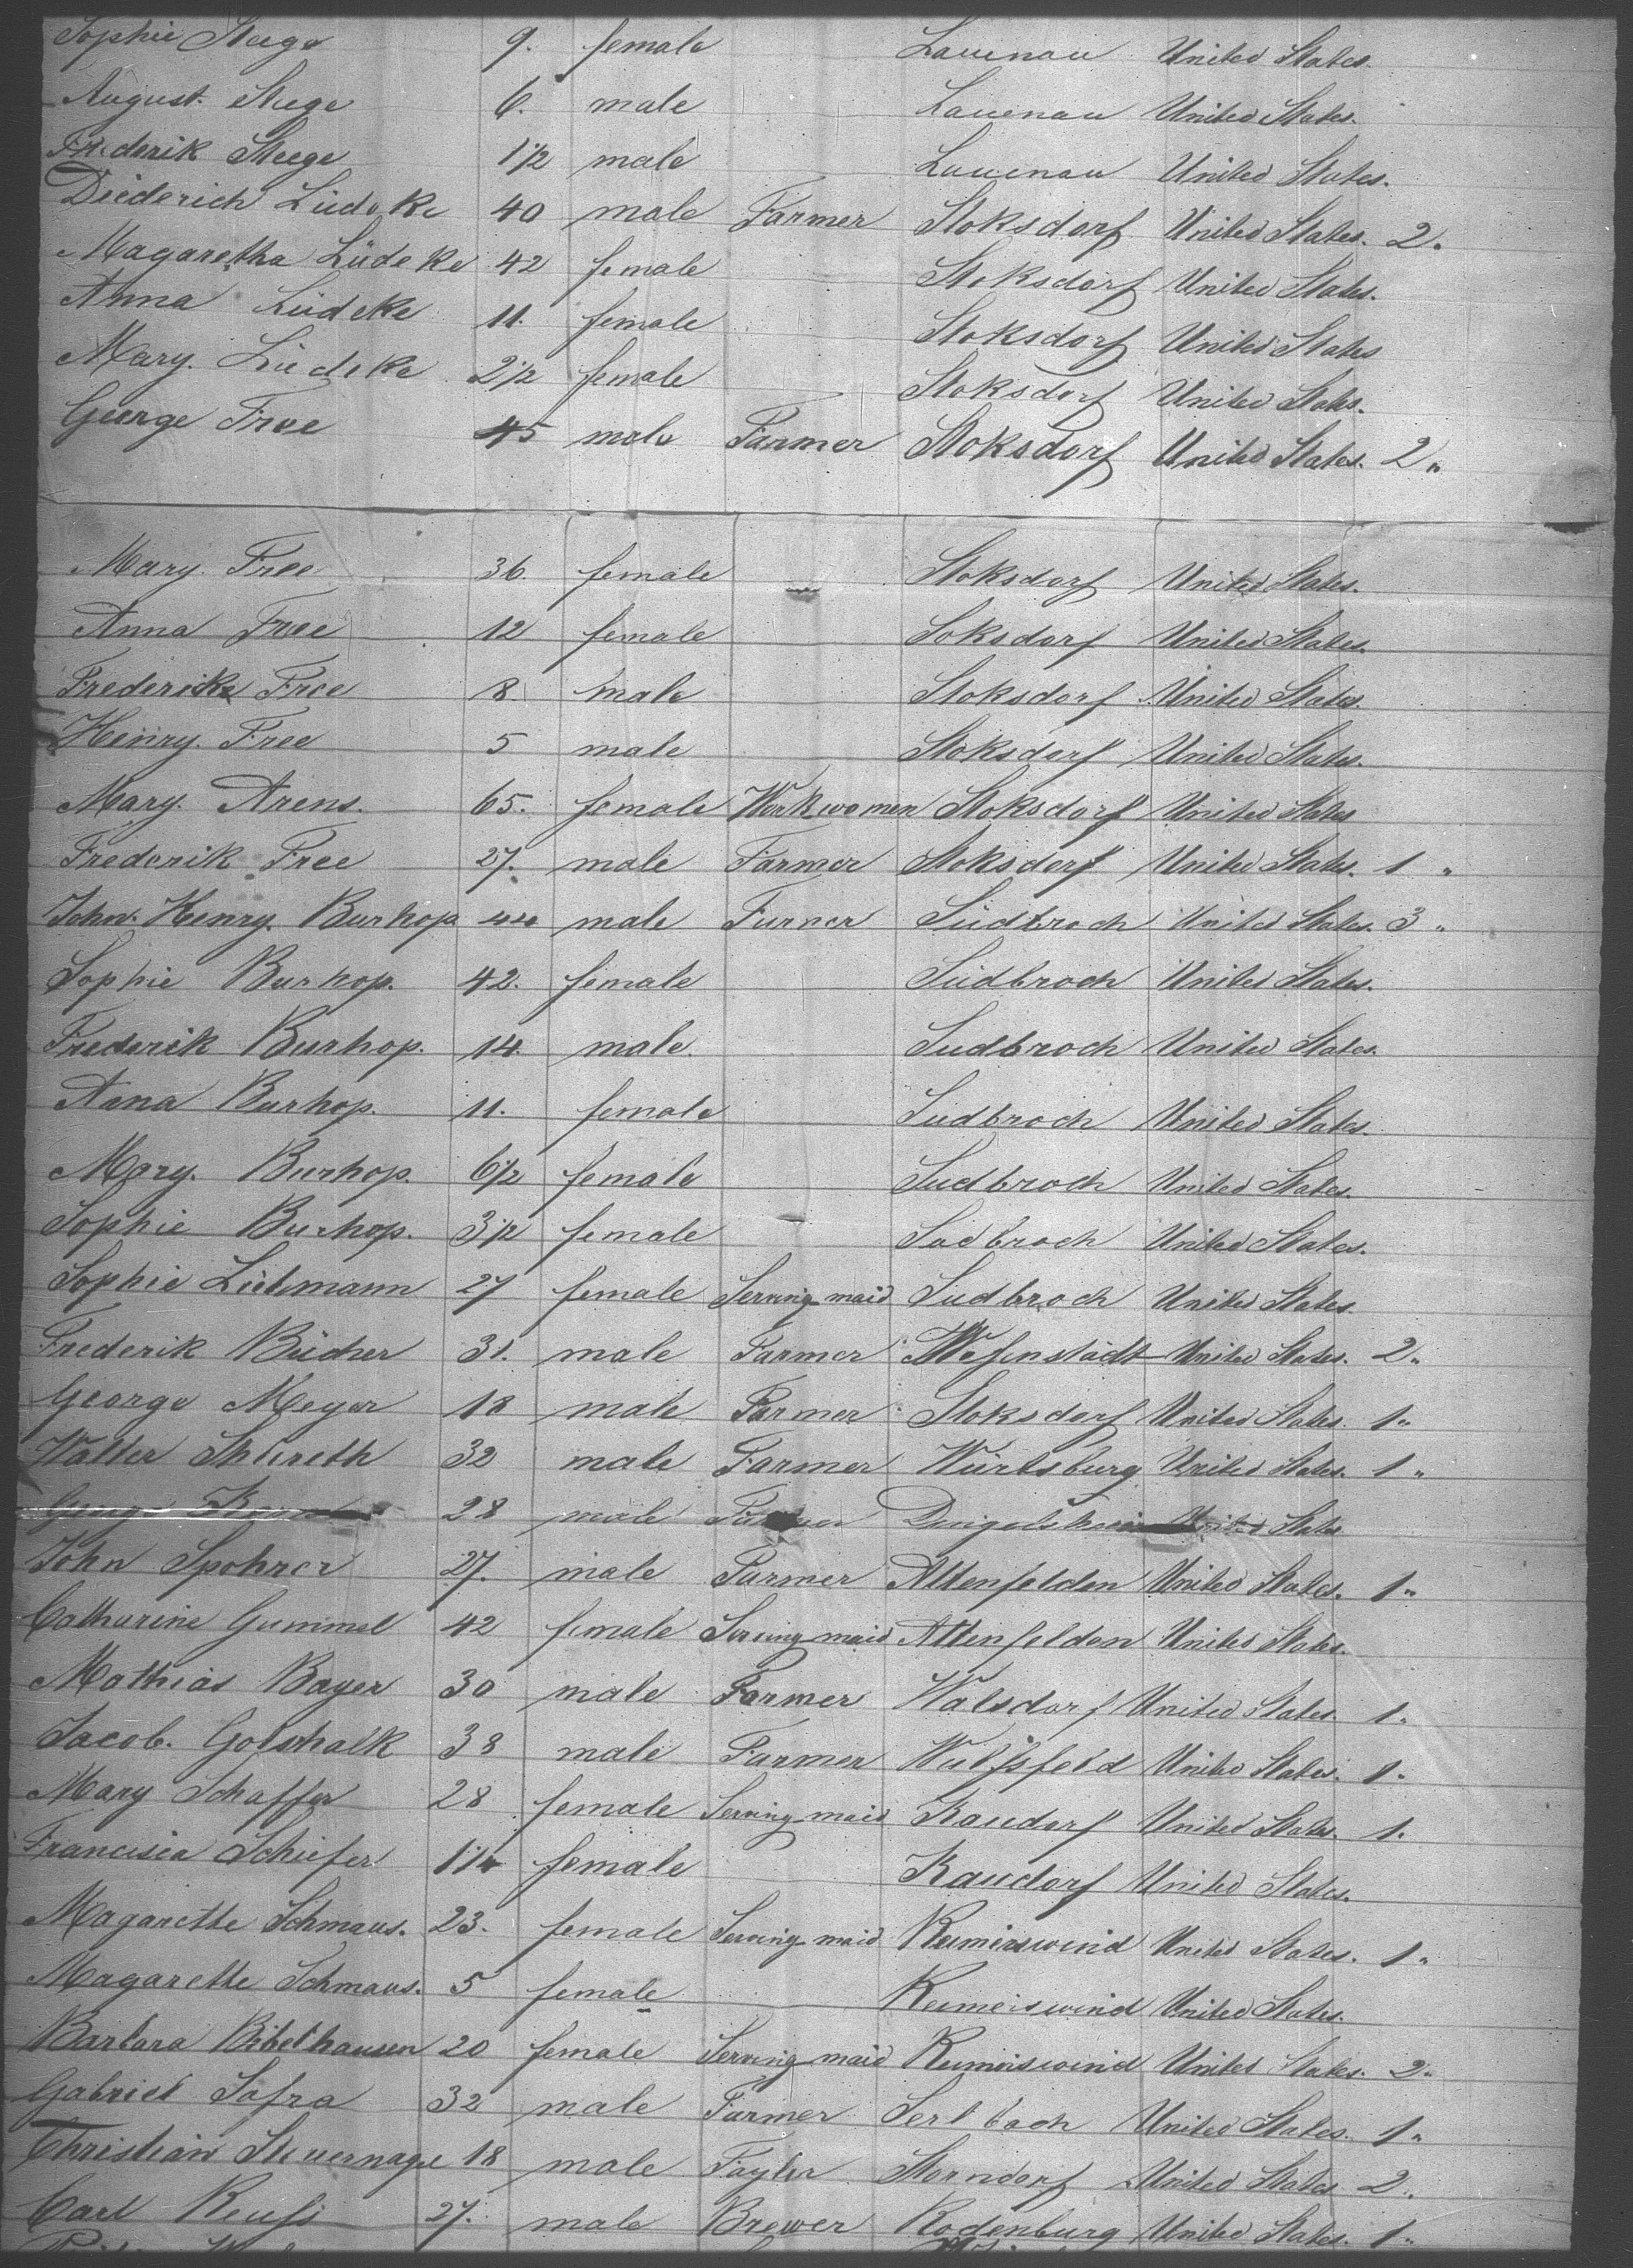 Sophie Steege 9. female Lauenau United States.
August. Steege 6. male Lauenau United States.
Frederik Steege 1 1/2 male Lauenau United States.
Diederich Lüdeke 40 male Farmer Stoksdorf United States. 2"
Magaretha Lüdeke 42 female Stoksdorf United States.
Anna Lüdeke 11. female Stoksdorf United States
Mary. Lüdeke 2 1/2 female Stoksdorf United States.
George Free 45 male Farmer Stoksdorf United States. 2"
Mary. Free 36. female Stoksdorf United States.
Anna Free 12 female Soksdorf United States.
Frederik Free 8. male Stoksdorf United States.
Henry. Free 5 male Stoksdorf United States.
Mary. Arens. 65. female Workwomen Stoksdorf United States
Frederik Free 27. male Farmer Stoksdorf United States. 1"
John. Henry. Burhop 44 male Furner Südbroch United States. 3"
Sophie Burhop. 42. female Südbroch United States.
Frederik Burhop. 14. male. Sudbroch United States.
Anna Burhop. 11. female Sudbroch United States.
Mary. Burhop. 6 1/2 female Sudbroch United States.
Sophie Burhop. 3 1/2 female Sudbroch United States.
Sophie Liebmann 27 female Serving maid Sudbroch United States.
Frederik Bücher 31. male Farmer United States. 2"
George Meyer 18 male Farmer Stoksdorf United States. 1"
Walter 32 male Farmer Würtsburg United States. 1"
28 male United States
John Spohrer 27. male Farmer Altenfelden United States. 1"
Catharine Gummel 42 female Serving maid Altenfelden United States.
Mathias Bayer 30 male Farmer Walsdorf United States. 1"
Jacob. Gotshalk 38 male Farmer Wulfsfeld United States. 1"
Mary Schaffer 28 female Serving maid Raudorf United States. 1.
Francisca Schiefer 1 1/4 female Raudorf United States.
Magarette Schmaus. 23. female Serving maid United States. 1"
Magarette Schmaus. 5 female Reimeiswind United States.
Barbara Bibelhausen 20 female Serving maid Reumeiswind United States. 2"
Gabriel Safra 32 male Farmer Serlbach United States. 1"
Christian Steuernagle 18 male Tayler Storndorf United States 2"
Carl Reuss 27. male Brewer Rodenburg United States. 1"